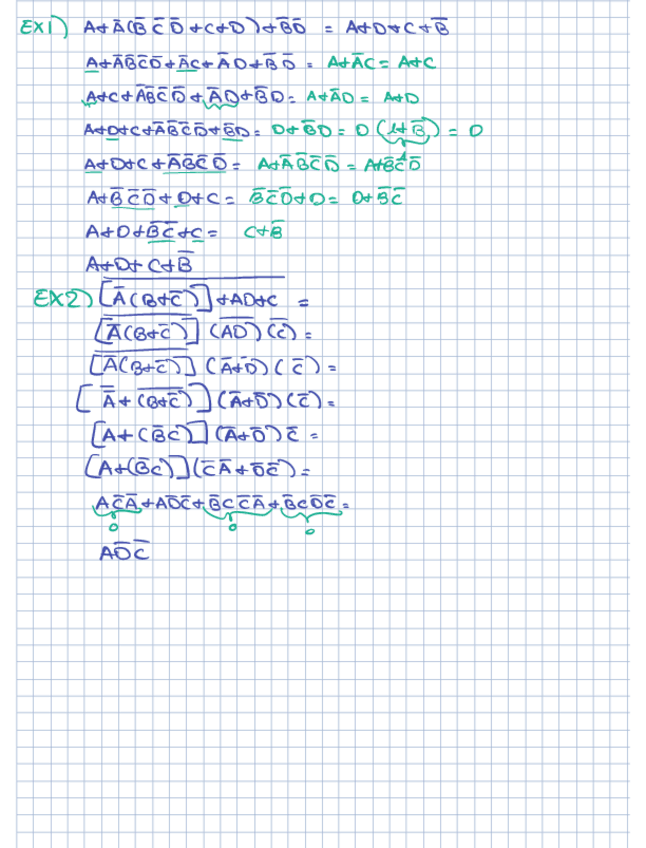 EX1) A+Ā(B̄ C̄ D̄ +C+D)+B̄D̄ = A+D+C+B̄
A+ĀB̄C̄D̄+ĀC+ĀD+B̄ D̄ = A+ĀC = A+C
A+C+ĀB̄C̄D̄+ĀD+B̄D= A+ĀD = A+D
A+D+C+ĀB̄C̄D̄+B̄D= D+B̄D = D(1+B̄) = D
1
A+D+C+ĀB̄C̄D̄ = A+ĀB̄C̄D̄ = A+B̄C̄D̄
A+B̄C̄D̄+D+C = B̄C̄D̄+D = D+B̄C̄
A+D+B̄C̄+C = C+B̄
A+D+C+B̄
EX2) [Ā(B+C̄)]+AD+C =
[Ā(B+C̄)] (A̅D̅)(C̄) =
[Ā(B+C̄)] (Ā+D̄)(C̄) =
[A̿+(B̅+̅C̿)](Ā+D̄)(C̄) =
[A+(B̄C)](Ā+D̄)C̄ =
[A+(B̄C)](C̄Ā+D̄C̄) =
AC̄Ā+AD̄C̄+B̄CC̄Ā+B̄CD̄C̄ =
0 0 0
AD̄C̄